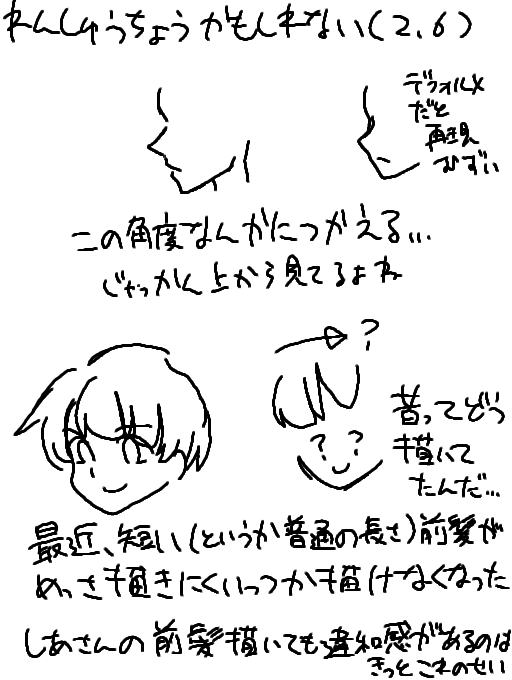 れんしゅうちょうかもしれない(2.6)
デフォルメ
だと
再現
むずい
この角度なんかにつかえる...
じゃっかん上から見てるよね
?
? ?
昔ってどう
描いて
たんだ...
最近、短い(というか普通の長さ)前髪が
めっさ描きにくいっつか描けなくなった
しあさんの前髪描いても違和感があるのは
きっとこれのせい